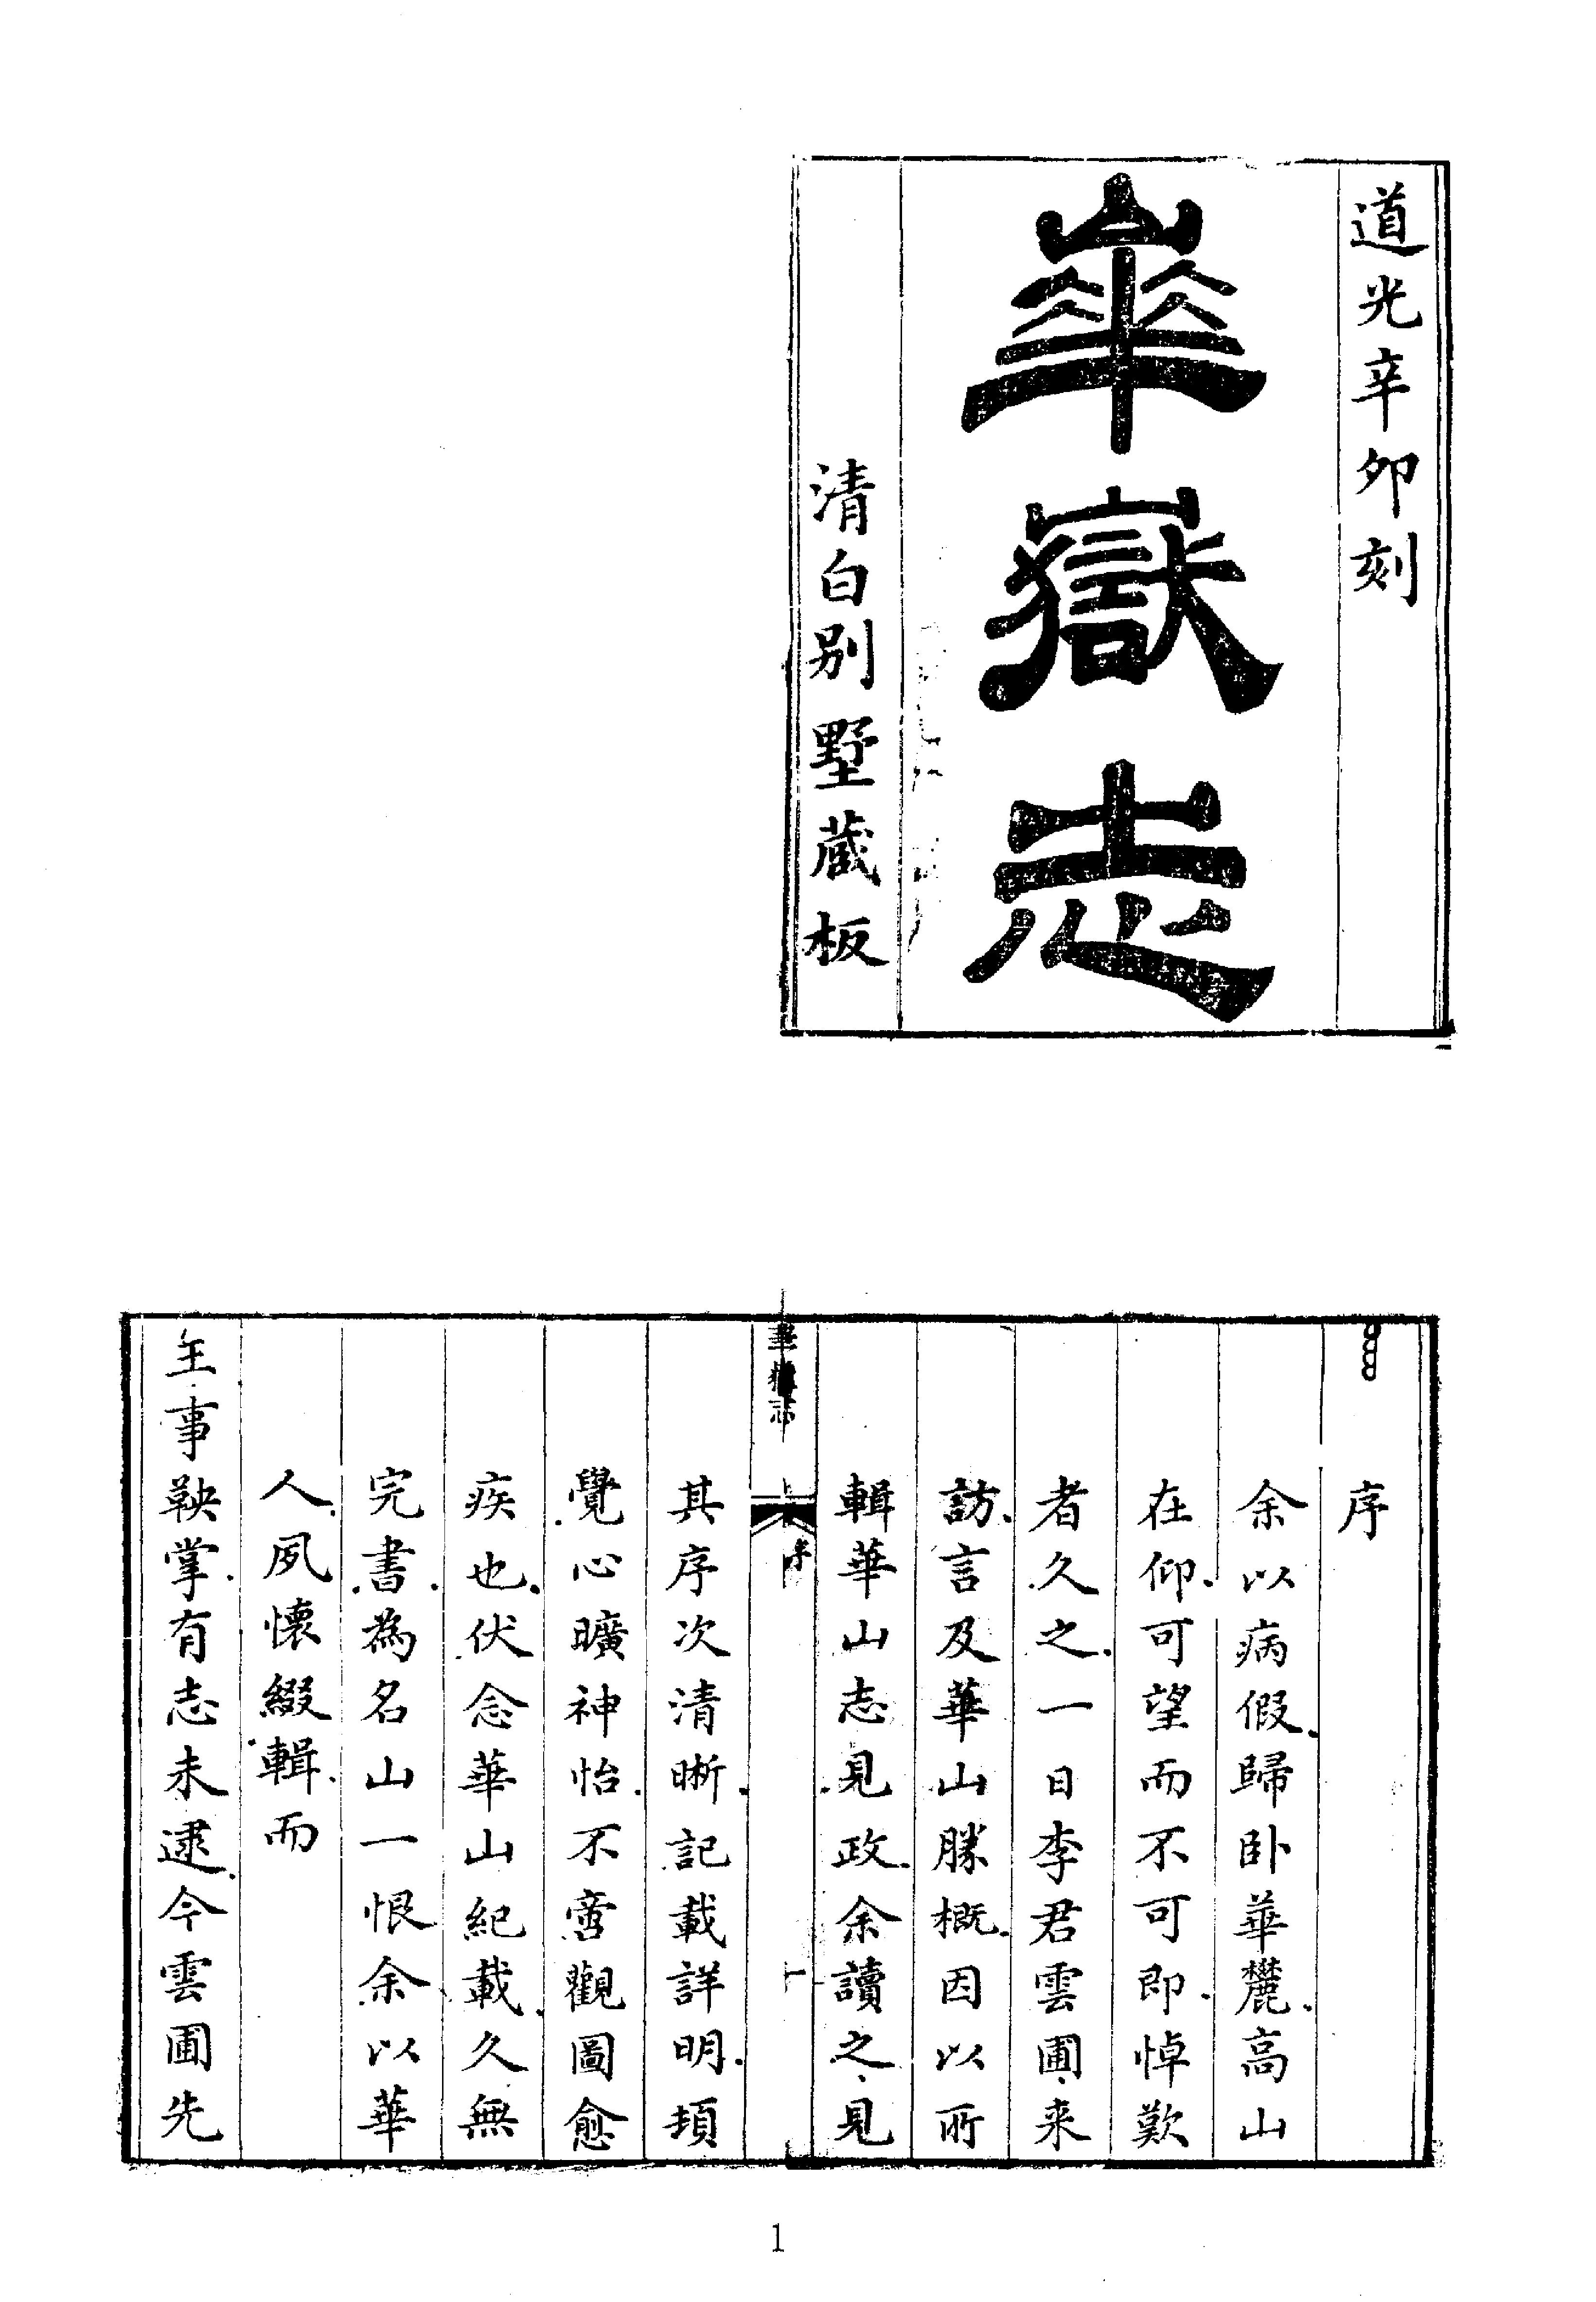 道光辛卯刻
華嶽志
清白别墅藏板
序
余以病假歸卧華麓高山
在仰可望而不可即悼歎
者久之一日李君雲圃來
訪言及華山勝概因以所
輯華山志見政余讀之見
華嶽志
序
一
其序次清晰記載詳明頓
覺心曠神怡不啻觀圖愈
疾也伏念華山紀載久無
完書為名山一恨余以華
人夙懷綴輯而
王事鞅掌有志未逮今雲圃先
1